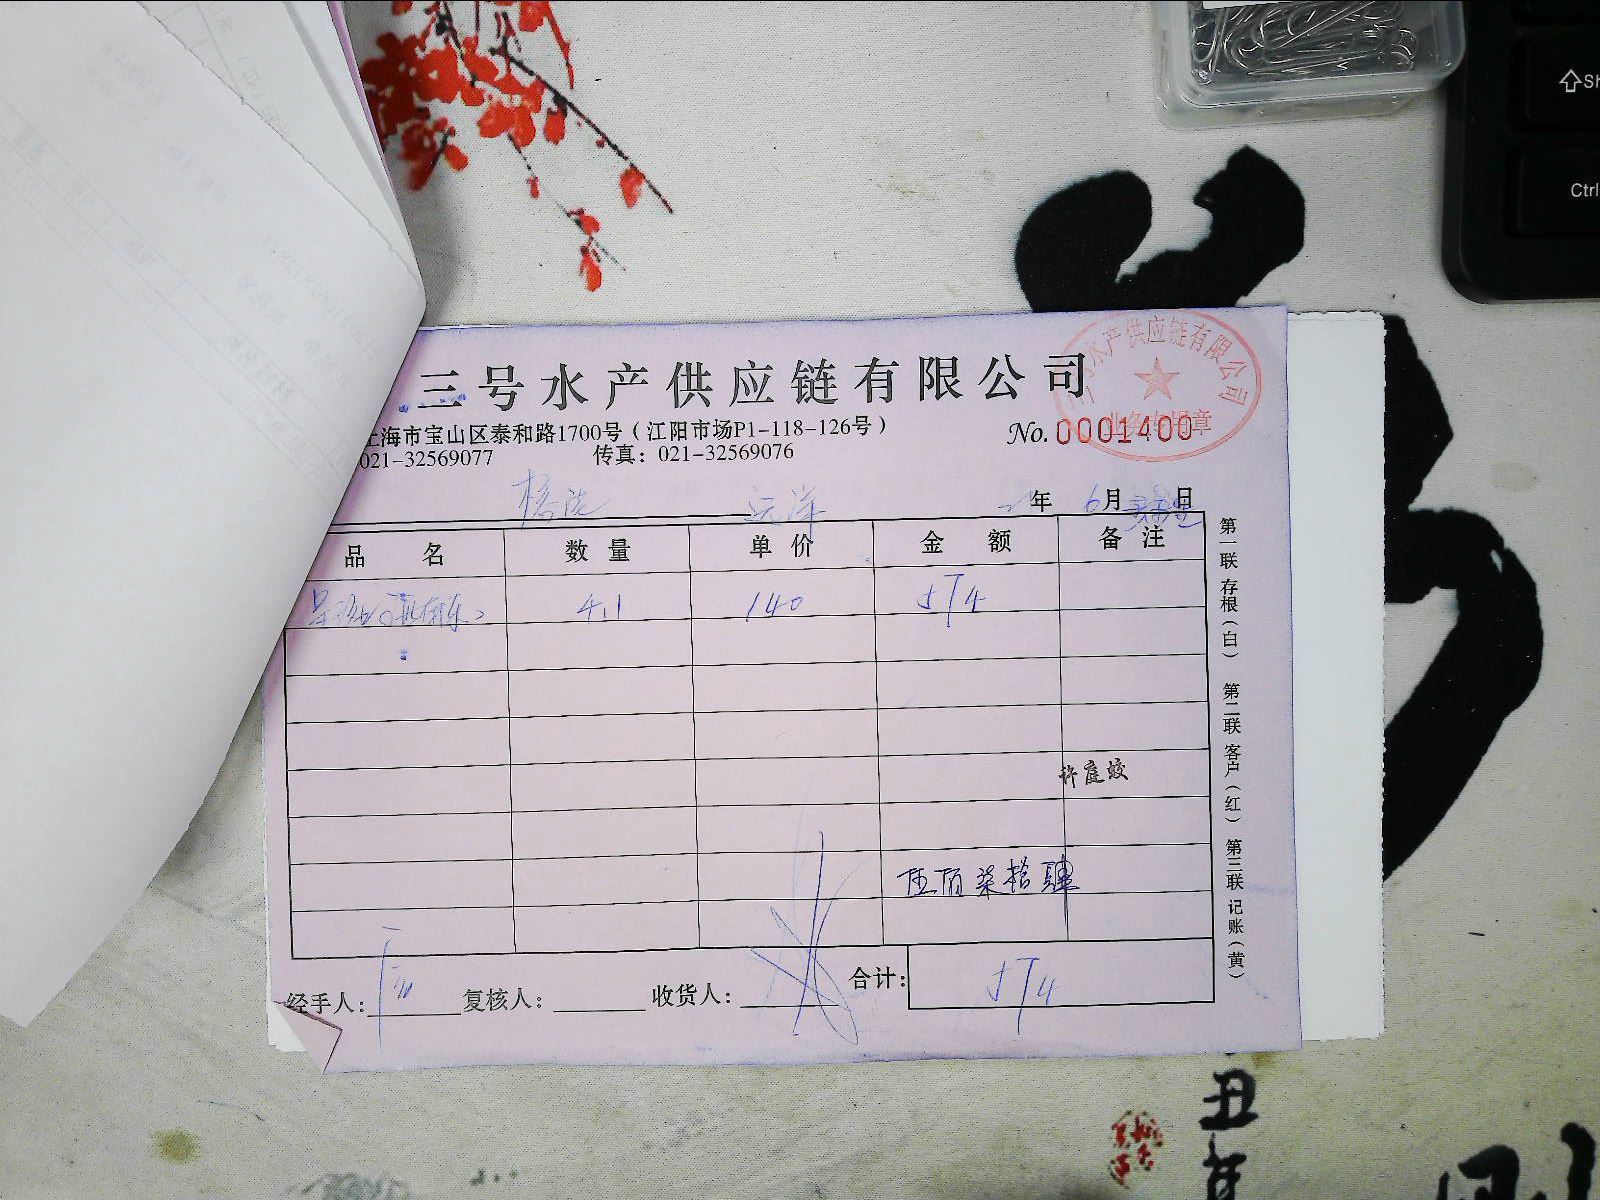 三号水产供应链有限公司
上海市宝山区泰和路1700号（江阳市场P1-118-126号）
021-32569077 传真：021-32569076
No. 0001400
水产供应链有限公司
业务专用章
远洋 年 6月 日
品名 数量 单价 金额 备注
4.1 140 574
许庭蛟
伍佰柒拾肆
合计： 574
经手人： 复核人： 收货人：
第一联 存根（白） 第二联 客户（红） 第三联 记账（黄）
Sh
Ctrl
丑
年